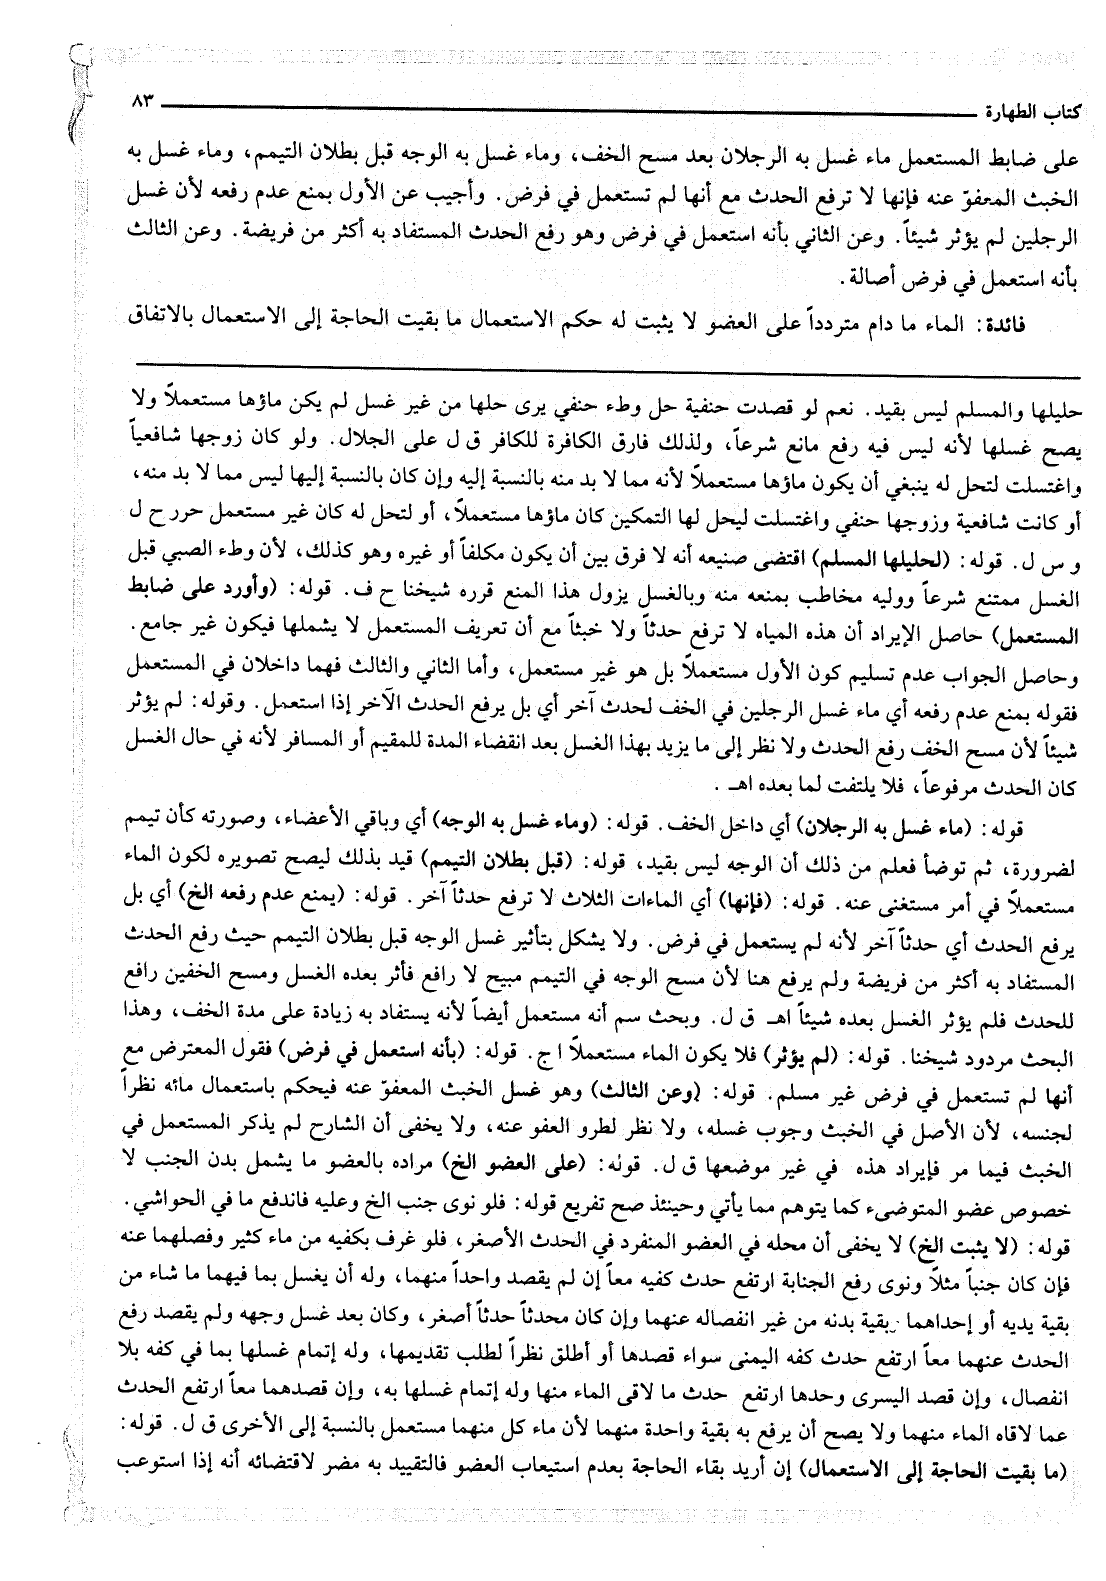 كتاب الطهارة ٨٣
على ضابط المستعمل ماء غسل به الرجلان بعد مسح الخف، وماء غسل به الوجه قبل بطلان التيمم، وماء غسل به
الخبث المعفوّ عنه فإنها لا ترفع الحدث مع أنها لم تستعمل في فرض. وأجيب عن الأول بمنع عدم رفعه لأن غسل
الرجلين لم يؤثر شيئاً. وعن الثاني بأنه استعمل في فرض وهو رفع الحدث المستفاد به أكثر من فريضة. وعن الثالث
بأنه استعمل في فرض أصالة.
فائدة: الماء ما دام متردداً على العضو لا يثبت له حكم الاستعمال ما بقيت الحاجة إلى الاستعمال بالاتفاق
حليلها والمسلم ليس بقيد. نعم لو قصدت حنفية حل وطء حنفي يرى حلها من غير غسل لم يكن ماؤها مستعملاً ولا
يصح غسلها لأنه ليس فيه رفع مانع شرعاً، ولذلك فارق الكافرة للكافر ق ل على الجلال. ولو كان زوجها شافعياً
واغتسلت لتحل له ينبغي أن يكون ماؤها مستعملاً لأنه مما لا بد منه بالنسبة إليه وإن كان بالنسبة إليها ليس مما لا بد منه،
أو كانت شافعية وزوجها حنفي واغتسلت ليحل لها التمكين كان ماؤها مستعملاً، أو لتحل له كان غير مستعمل حرر ح ل
و س ل. قوله: (لحليلها المسلم) اقتضى صنيعه أنه لا فرق بين أن يكون مكلفاً أو غيره وهو كذلك، لأن وطء الصبي قبل
الغسل ممتنع شرعاً ووليه مخاطب بمنعه منه وبالغسل يزول هذا المنع قرره شيخنا ح ف. قوله: (وأورد على ضابط
المستعمل) حاصل الإيراد أن هذه المياه لا ترفع حدثاً ولا خبثاً مع أن تعريف المستعمل لا يشملها فيكون غير جامع.
وحاصل الجواب عدم تسليم كون الأول مستعملاً بل هو غير مستعمل، وأما الثاني والثالث فهما داخلان في المستعمل
فقوله بمنع عدم رفعه أي ماء غسل الرجلين في الخف لحدث آخر أي بل يرفع الحدث الآخر إذا استعمل. وقوله: لم يؤثر
شيئاً لأن مسح الخف رفع الحدث ولا نظر إلى ما يزيد بهذا الغسل بعد انقضاء المدة للمقيم أو المسافر لأنه في حال الغسل
كان الحدث مرفوعاً، فلا يلتفت لما بعده اهـ .
قوله: (ماء غسل به الرجلان) أي داخل الخف. قوله: (وماء غسل به الوجه) أي وباقي الأعضاء، وصورته كأن تيمم
لضرورة، ثم توضأ فعلم من ذلك أن الوجه ليس بقيد، قوله: (قبل بطلان التيمم) قيد بذلك ليصح تصويره لكون الماء
مستعملاً في أمر مستغنى عنه. قوله: (فإنها) أي الماءات الثلاث لا ترفع حدثاً آخر. قوله: (يمنع عدم رفعه الخ) أي بل
يرفع الحدث أي حدثاً آخر لأنه لم يستعمل في فرض. ولا يشكل بتأثير غسل الوجه قبل بطلان التيمم حيث رفع الحدث
المستفاد به أكثر من فريضة ولم يرفع هنا لأن مسح الوجه في التيمم مبيح لا رافع فأثر بعده الغسل ومسح الخفين رافع
للحدث فلم يؤثر الغسل بعده شيئاً اهـ ق ل. وبحث سم أنه مستعمل أيضاً لأنه يستفاد به زيادة على مدة الخف، وهذا
البحث مردود شيخنا. قوله: (لم يؤثر) فلا يكون الماء مستعملاً ا ج. قوله: (بأنه استعمل في فرض) فقول المعترض مع
أنها لم تستعمل في فرض غير مسلم. قوله: (وعن الثالث) وهو غسل الخبث المعفوّ عنه فيحكم باستعمال مائه نظراً
لجنسه، لأن الأصل في الخبث وجوب غسله، ولا نظر لطرو العفو عنه، ولا يخفى أن الشارح لم يذكر المستعمل في
الخبث فيما مر فإيراد هذه في غير موضعها ق ل. قوله: (على العضو الخ) مراده بالعضو ما يشمل بدن الجنب لا
خصوص عضو المتوضىء كما يتوهم مما يأتي وحينئذ صح تفريع قوله: فلو نوى جنب الخ وعليه فاندفع ما في الحواشي.
قوله: (لا يثبت الخ) لا يخفى أن محله في العضو المنفرد في الحدث الأصغر، فلو غرف بكفيه من ماء كثير وفصلهما عنه
فإن كان جنباً مثلاً ونوى رفع الجنابة ارتفع حدث كفيه معاً إن لم يقصد واحداً منهما، وله أن يغسل بما فيهما ما شاء من
بقية يديه أو إحداهما بقية بدنه من غير انفصاله عنهما وإن كان محدثاً حدثاً أصغر، وكان بعد غسل وجهه ولم يقصد رفع
الحدث عنهما معاً ارتفع حدث كفه اليمنى سواء قصدها أو أطلق نظراً لطلب تقديمها، وله إتمام غسلها بما في كفه بلا
انفصال، وإن قصد اليسرى وحدها ارتفع حدث ما لاقى الماء منها وله إتمام غسلها به، وإن قصدهما معاً ارتفع الحدث
عما لاقاه الماء منهما ولا يصح أن يرفع به بقية واحدة منهما لأن ماء كل منهما مستعمل بالنسبة إلى الأخرى ق ل. قوله:
(ما بقيت الحاجة إلى الاستعمال) إن أريد بقاء الحاجة بعدم استيعاب العضو فالتقييد به مضر لاقتضائه أنه إذا استوعب